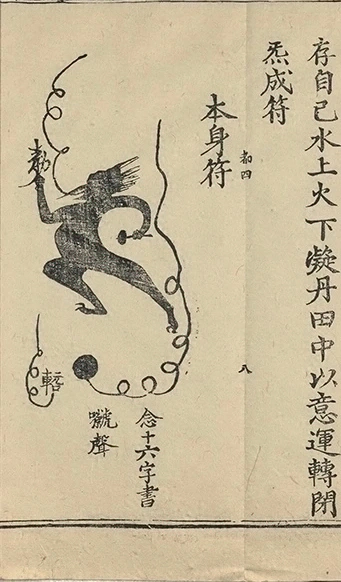 存自己水上火下凝丹田中以意運轉閉
炁成符
本身符
都四
八
念十六字書
聲